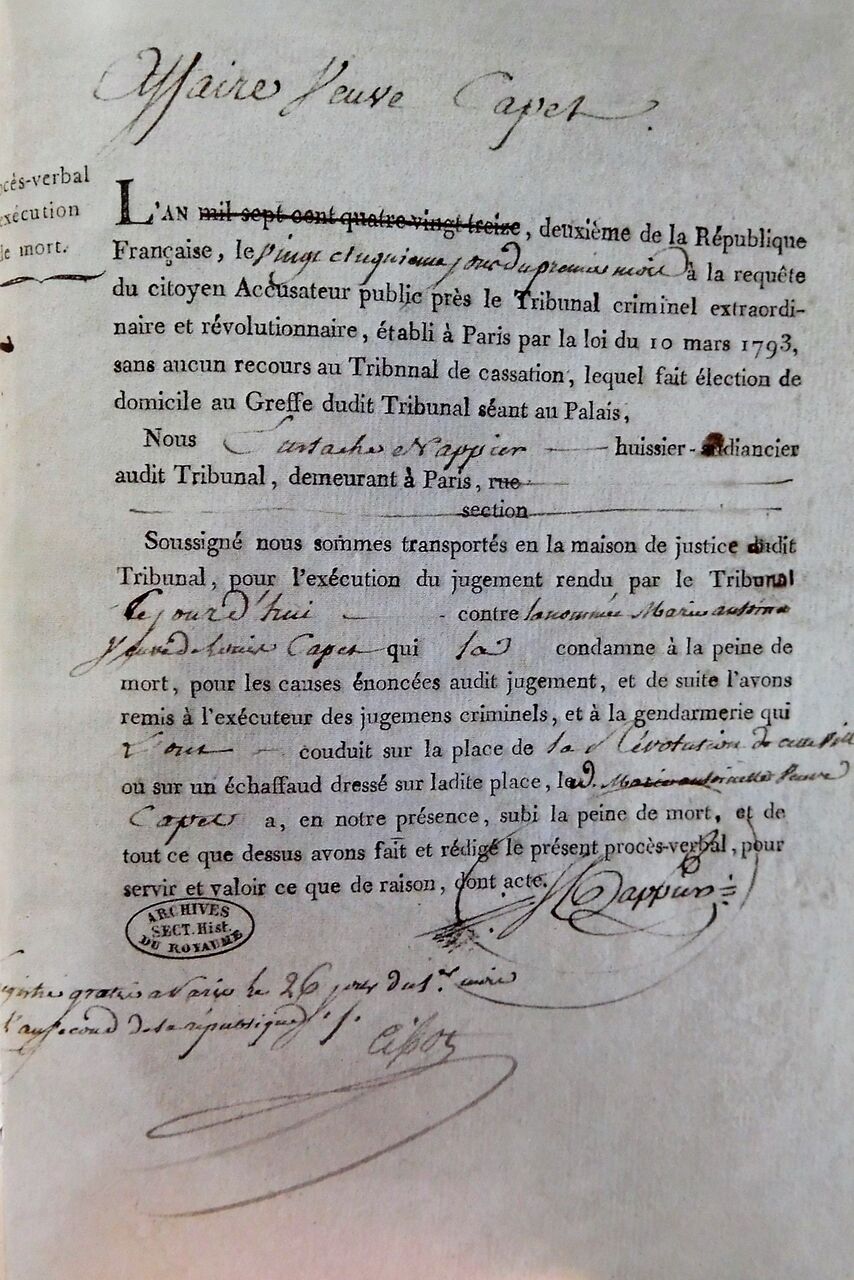 Affaire Veuve Capet.
cés-verbal
exécution
de mort.
L'AN mil sept cent quatre-vingt treize, deuxième de la République
Française, le Vingt cinquieme jour du premier mois à la requête
du citoyen Accusateur public près le Tribunal criminel extraordi-
naire et révolutionnaire, établi à Paris par la loi du 10 mars 1793,
sans aucun recours au Tribnnal de cassation, lequel fait élection de
domicile au Greffe dudit Tribunal séant au Palais,
Nous Eustache Nappier huissier-audiancier
audit Tribunal, demeurant à Paris, rue
section
Soussigné nous sommes transportés en la maison de justice dudit
Tribunal, pour l'exécution du jugement rendu par le Tribunal
Cejourd'hui contre la nommée Marie antoine
Veuve de Louis Capet qui la condamne à la peine de
mort, pour les causes énoncées audit jugement, et de suite l'avons
remis à l'exécuteur des jugemens criminels, et à la gendarmerie qui
l'ont couduit sur la place de la Révolution de cette Ville
ou sur un échaffaud dressé sur ladite place, lad. Marie antoinette Veuve
Capet a, en notre présence, subi la peine de mort, et de
tout ce que dessus avons fait et rédigé le présent procès-verbal, pour
servir et valoir ce que de raison, dont acte.
Nappier
ARCHIVES
SECT. Hist.
DU ROYAUME
gistré gratis a Paris le 26 jour du 1.er mois
l'an second de la république